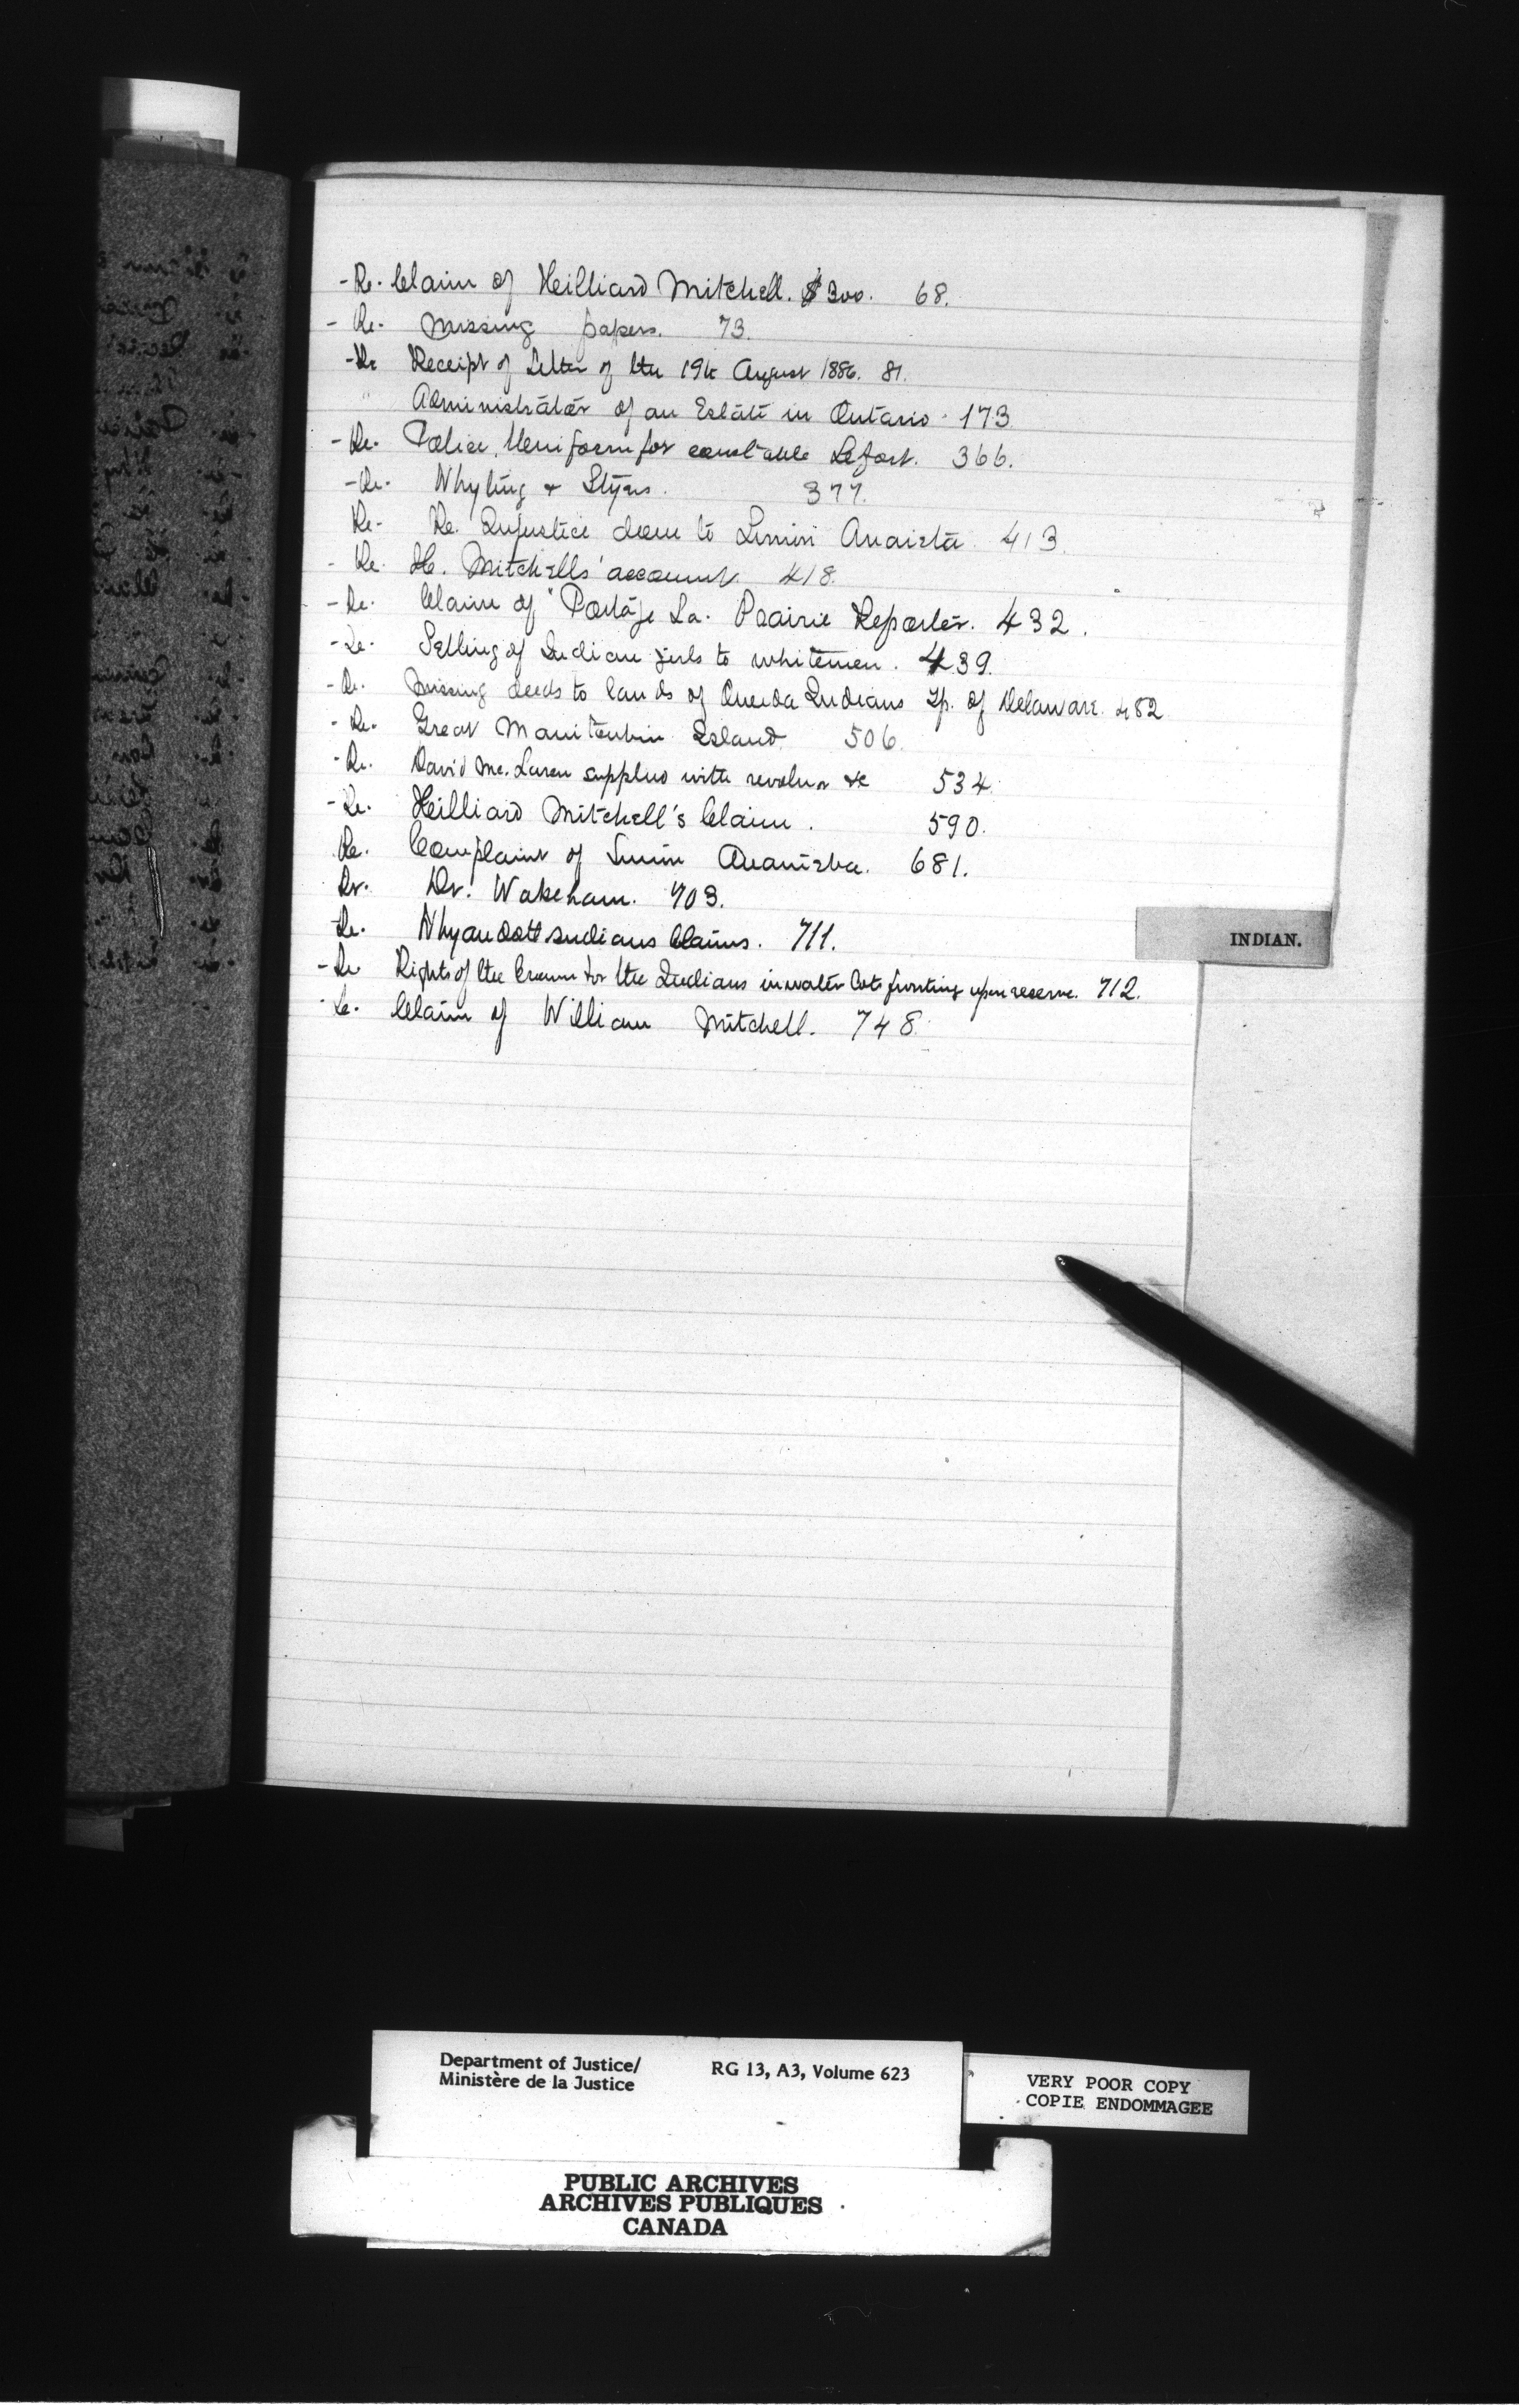 - Re. Claim of Hilliard Mitchell. $300. 68.
- Re. Missing papers. 73.
- Re Receipt of Letter of the 19th August 1886. 81.
" Administrator of an Estate in Ontario. 173
- Re. Police Uniform for constable Lefort. 366.
- Re. Whyling & Styres. 377.
Re. Re. Injustice done to Simon Anaista 413.
- Re. H. Mitchells' account. 418.
- Re. Claim of "Portage La. Prairie Reporter. 432.
- Re. Selling of Indian girls to whitemen. 439.
- Re. Missing deeds to lands of Oneida Indians Tp. of Delaware. 482
- Re. Great Manitoulin Island. 506.
- Re. David Mc.Laren supplied with revolver &c 534.
- Re. Hilliard Mitchell's Claim. 590.
Re. Complaint of 681.
Re. Dr. Wakeham. 703.
- Re. Whyandott Indians Claims. 711.
- Re Rights of the Crown for the Indians in water lots fronting upon reserve. 712.
- Re. Claim of William Mitchell. 748.
INDIAN.
Department of Justice/
Ministère de la Justice
RG 13, A3, Volume 623
VERY POOR COPY
COPIE ENDOMMAGEE
PUBLIC ARCHIVES
ARCHIVES PUBLIQUES
CANADA